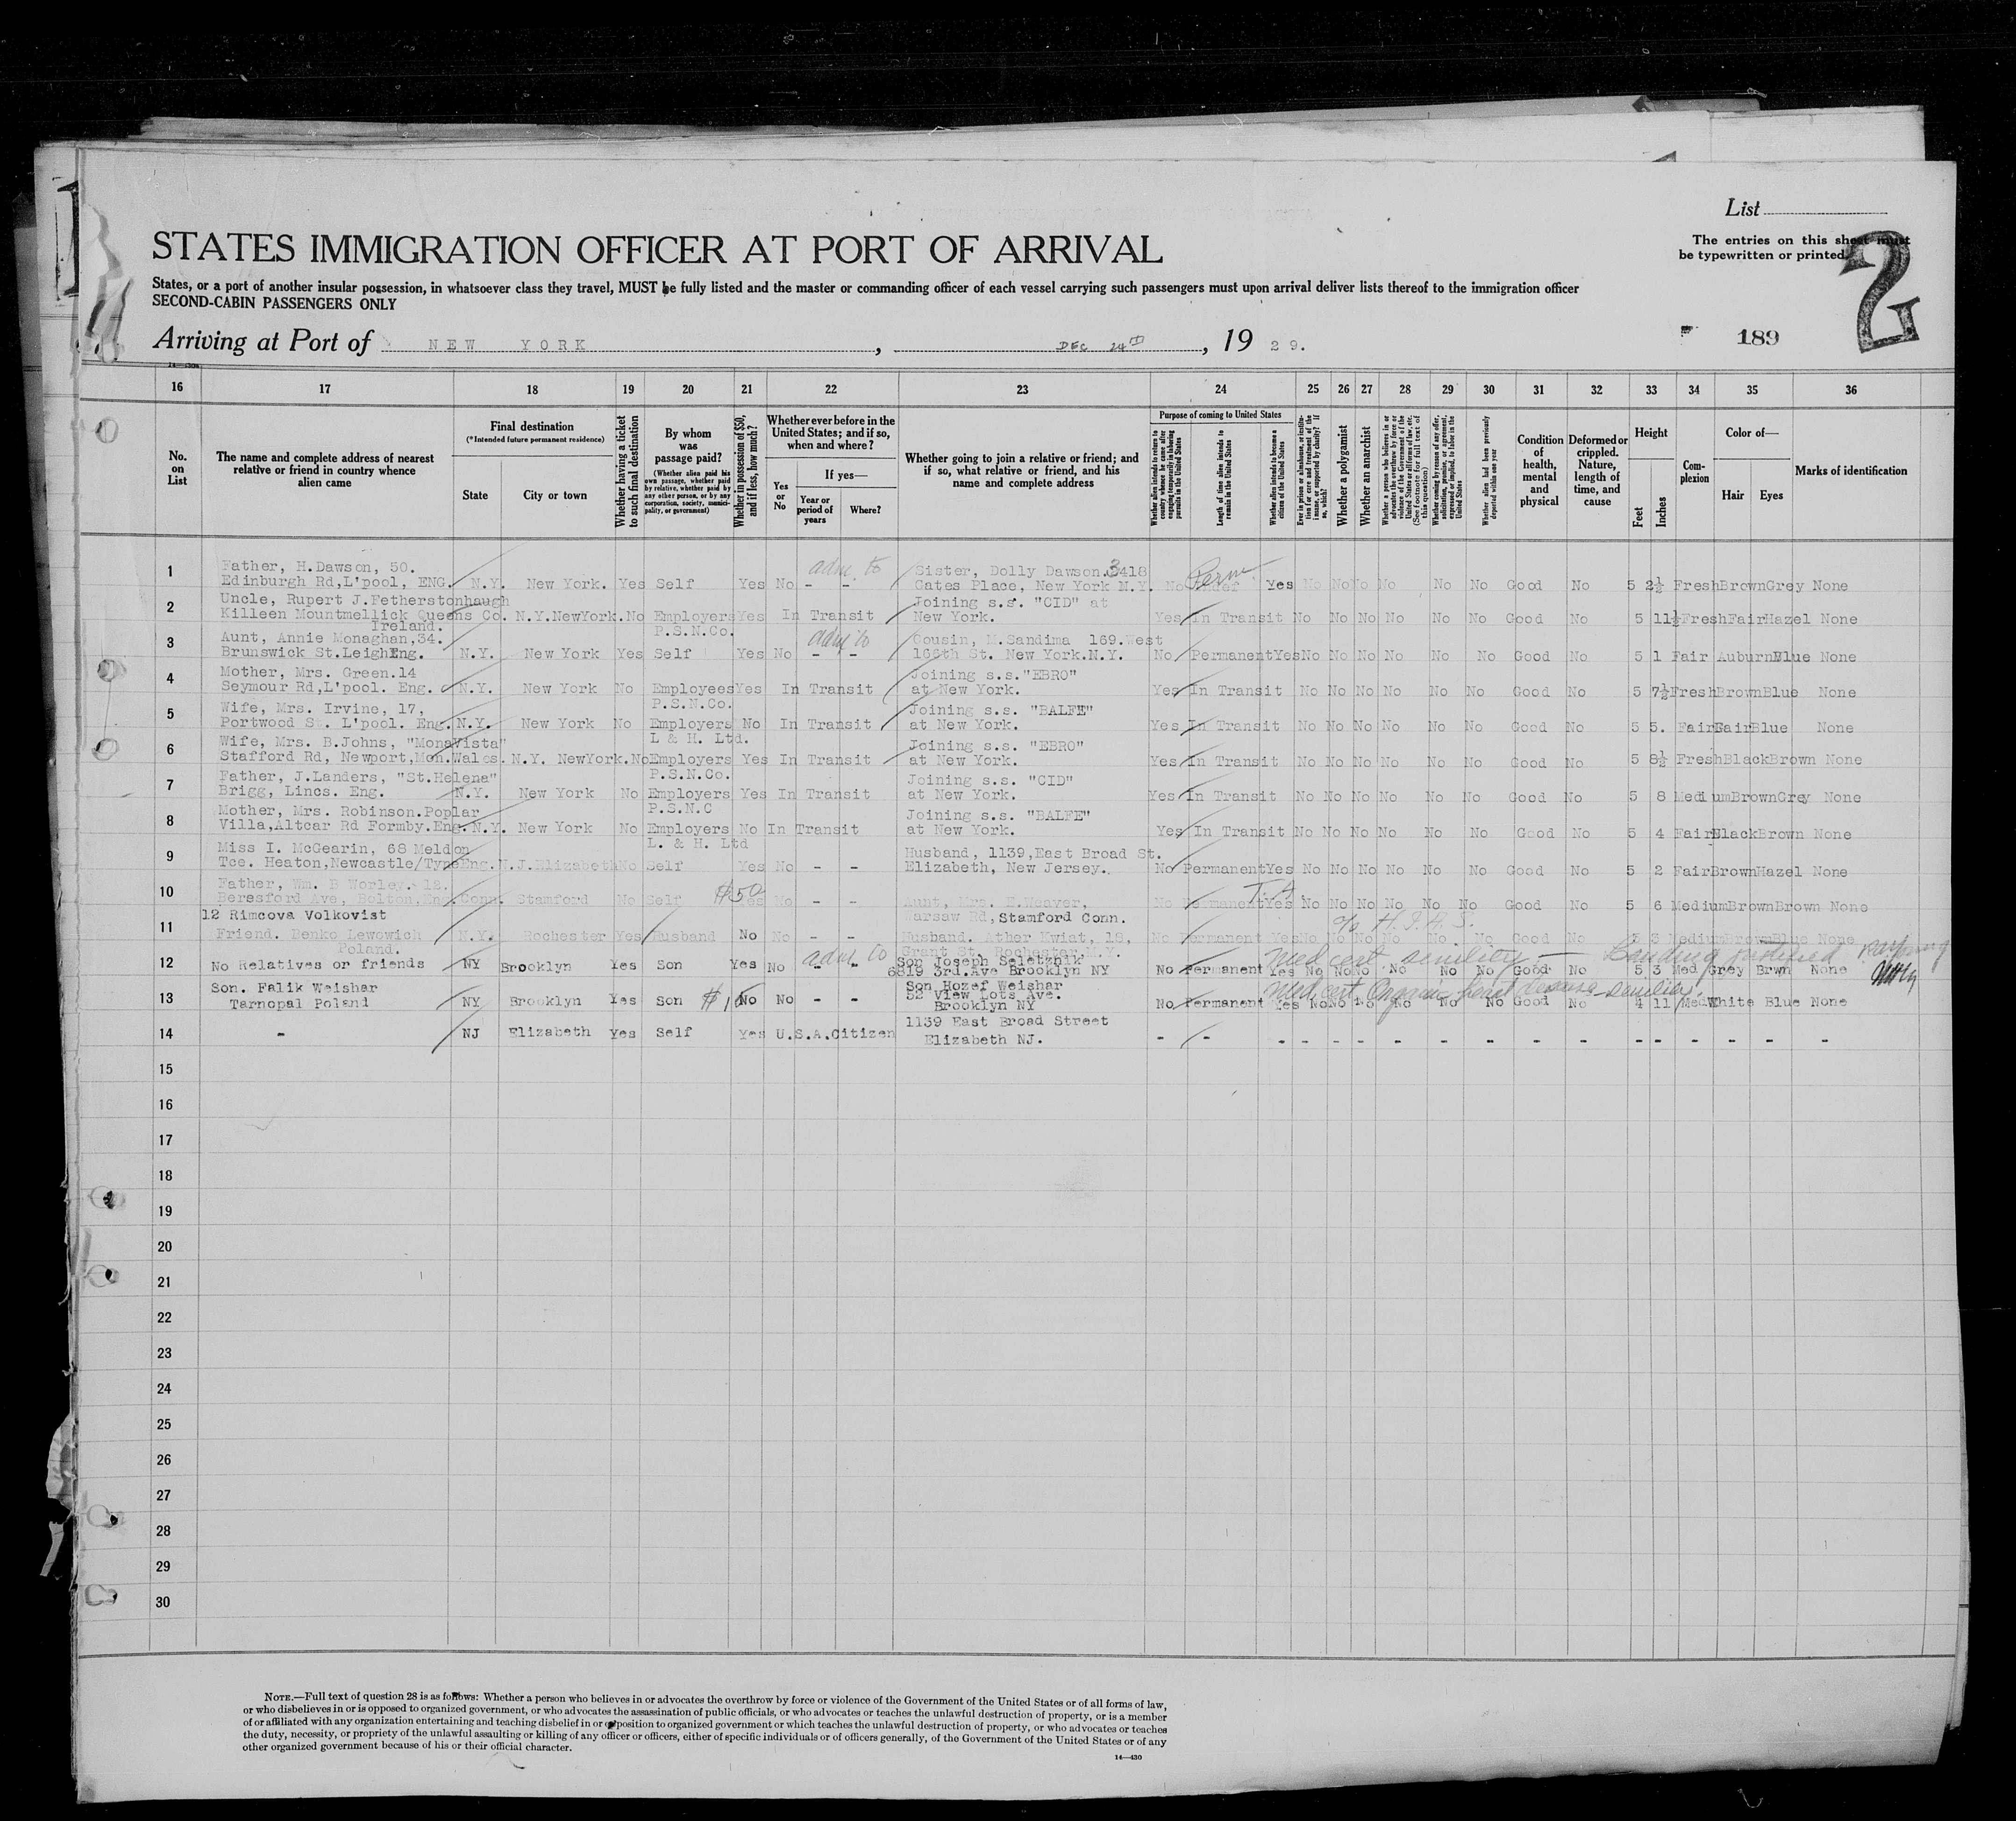 List
STATES IMMIGRATION OFFICER AT PORT OF ARRIVAL
The entries on this sheet must
be typewritten or printed.
2
States, or a port of another insular possession, in whatsoever class they travel, MUST be fully listed and the master or commanding officer of each vessel carrying such passengers must upon arrival deliver lists thereof to the immigration officer
SECOND-CABIN PASSENGERS ONLY
Arriving at Port of NEW YORK, DEC 24TH, 19 29.
189
16 17 18 19 20 21 22 23 24 25 26 27 28 29 30 31 32 33 34 35 36
No. on List
The name and complete address of nearest relative or friend in country whence alien came
Final destination
(*Intended future permanent residence)
State
City or town
Whether having a ticket to such final destination
By whom was passage paid?
(Whether alien paid his own passage, whether paid by relative, whether paid by any other person, or by any corporation, society, municipality, or government)
Whether in possession of $50, and if less, how much?
Whether ever before in the United States; and if so, when and where?
Yes or No
If yes—
Year or period of years
Where?
Whether going to join a relative or friend; and if so, what relative or friend, and his name and complete address
Purpose of coming to United States
Whether alien intends to return to country whence he came after engaging temporarily in laboring pursuits in the United States
Length of time alien intends to remain in the United States
Whether alien intends to become a citizen of the United States
Ever in prison or almshouse, or institution for care and treatment of the insane, or supported by charity? If so, which?
Whether a polygamist
Whether an anarchist
Whether a person who believes in or advocates the overthrow by force or violence of the Government of the United States or all forms of law, etc. (See footnote for full text of this question)
Whether coming by reason of any offer, solicitation, promise, or agreement, expressed or implied, to labor in the United States
Whether alien had been previously deported within one year
Condition of health, mental and physical
Deformed or crippled. Nature, length of time, and cause
Height
Feet
Inches
Complexion
Color of—
Hair
Eyes
Marks of identification
1 Father, H.Dawson, 50. adm. to Sister, Dolly Dawson.3418 Perm
Edinburgh Rd,L'pool, ENG. N.Y. New York. Yes Self Yes No - - Gates Place, New York N.Y. No Indef Yes No No No No No No Good No 5 2½ Fresh Brown Grey None
2 Uncle, Rupert J.Fetherstonhaugh Joining s.s. "CID" at
Killeen Mountmellick Queens Co. N.Y. NewYork. No Employers Yes In Transit New York. Yes In Transit No No No No No No Good No 5 11½ Fresh Fair Hazel None
Ireland. P.S.N.Co.
3 Aunt, Annie Monaghan,34. adm to Cousin, M.Sandima 169.West
Brunswick St.Leigh Eng. N.Y. New York Yes Self Yes No - - 166th St. New York.N.Y. No Permanent Yes No No No No No No Good No 5 1 Fair Auburn Blue None
4 Mother, Mrs. Green.14 Joining s.s."EBRO"
Seymour Rd,L'pool. Eng. N.Y. New York No Employees Yes In Transit at New York. Yes In Transit No No No No No No Good No 5 7½ Fresh Brown Blue None
P.S.N.Co.
5 Wife, Mrs. Irvine, 17, Joining s.s. "BALFE"
Portwood St. L'pool. Eng. N.Y. New York No Employers No In Transit at New York. Yes In Transit No No No No No No Good No 5 5. Fair Fair Blue None
L & H. Ltd.
6 Wife, Mrs. B.Johns, "MonaVista" Joining s.s. "EBRO"
Stafford Rd, Newport,Mon.Wales. N.Y. NewYork. No Employers Yes In Transit at New York. Yes In Transit No No No No No No Good No 5 8½ Fresh Black Brown None
P.S.N.Co.
7 Father, J.Landers, "St.Helena" Joining s.s. "CID"
Brigg, Lincs. Eng. N.Y. New York No Employers Yes In Transit at New York. Yes In Transit No No No No No No Good No 5 8 Medium Brown Grey None
P.S.N.C
8 Mother, Mrs. Robinson.Poplar Joining s.s. "BALFE"
Villa,Altcar Rd Formby.Eng. N.Y. New York No Employers No In Transit at New York. Yes In Transit No No No No No No Good No 5 4 Fair Black Brown None
L. & H. Ltd
9 Miss I. McGearin, 68 Meldon Husband, 1139,East Broad St.
Tce. Heaton,Newcastle/Tyne Eng. N.J. Elizabeth No Self Yes No - - Elizabeth, New Jersey. No Permanent Yes No No No No No No Good No 5 2 Fair Brown Hazel None
10 Father, Wm. B Worley. 12. $50
Beresford Ave, Bolton,Eng. Conn. Stamford No Self Yes No - - Aunt, Mrs. E.Weaver, No Permanent Yes No No No No No No Good No 5 6 Medium Brown Brown None
Warsaw Rd, Stamford Conn.
11 12 Rimcova Volkovist c/o H.I.A.S.
Friend. Benko Lewowich N.Y. Rochester Yes Husband No No - - Husband. Ather Kwiat, 19, No Permanent Yes No No No No No No Good No 5 3 Medium Brown Blue None
Poland. Grant St. Rochester.N.Y.
12 adm. to Son Joseph Seletznik Med cert senility - Landing justified
No Relatives or friends NY Brooklyn Yes Son Yes No - - 6819 3rd.Ave Brooklyn NY No Permanent Yes No No No No No No Good No 5 3 Med Grey Brwn None
13 Son. Falik Weishar Son Hozef Weishar Med cert Organic heart disease - senility.
Tarnopal Poland NY Brooklyn Yes Son No No - - 52 View Lots Ave. Brooklyn NY No Permanent Yes No No No No No No Good No 4 11 Med White Blue None
14 - NJ Elizabeth Yes Self Yes U.S.A.Citizen 1139 East Broad Street
Elizabeth NJ. - - - - - - - - - - - - - - - - -
15
16
17
18
19
20
21
22
23
24
25
26
27
28
29
30
NOTE.—Full text of question 28 is as follows: Whether a person who believes in or advocates the overthrow by force or violence of the Government of the United States or of all forms of law,
or who disbelieves in or is opposed to organized government, or who advocates the assassination of public officials, or who advocates or teaches the unlawful destruction of property, or is a member
of or affiliated with any organization entertaining and teaching disbelief in or opposition to organized government or which teaches the unlawful destruction of property, or who advocates or teaches
the duty, necessity, or propriety of the unlawful assaulting or killing of any officer or officers, either of specific individuals or of officers generally, of the Government of the United States or of any
other organized government because of his or their official character.
14—430